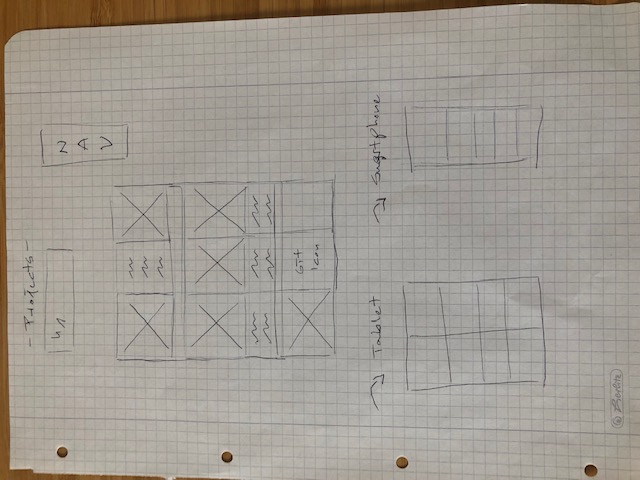 - Projects -
h1
N
A
V
Git
icon
Tablet
Smartphone
Berlitz